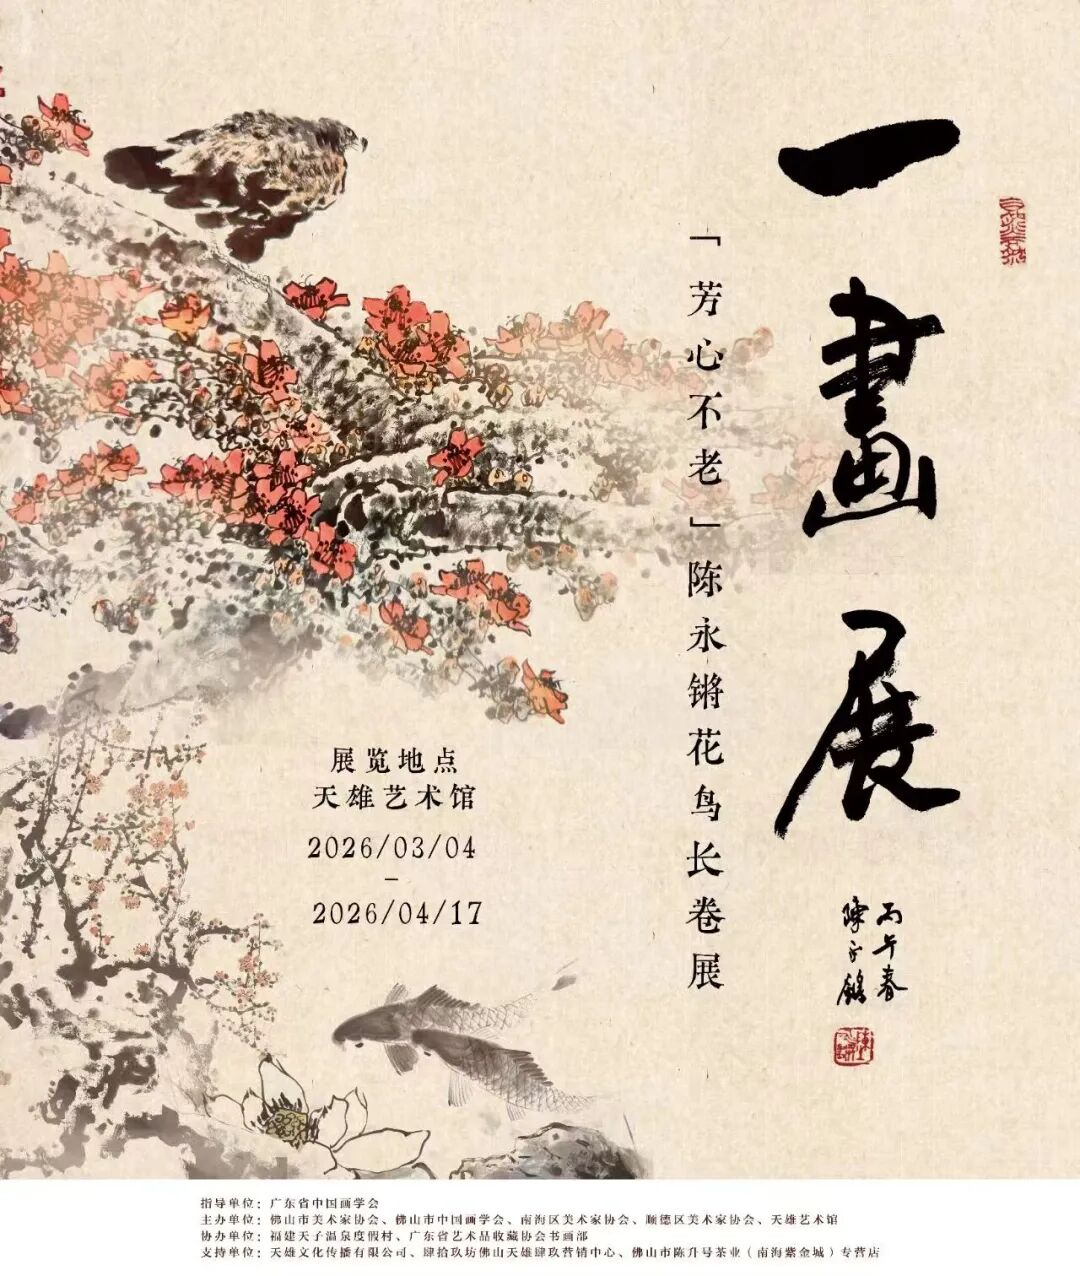 一畫展
丙午春
陳永鏘
「芳心不老」陈永锵花鸟长卷展
展览地点
天雄艺术馆
2026/03/04
–
2026/04/17
指导单位：广东省中国画学会
主办单位：佛山市美术家协会、佛山市中国画学会、南海区美术家协会、顺德区美术家协会、天雄艺术馆
协办单位：福建天子温泉度假村、广东省艺术品收藏协会书画部
支持单位：天雄文化传播有限公司、肆拾玖坊佛山天雄肆玖营销中心、佛山市陈升号茶业（南海紫金城）专营店